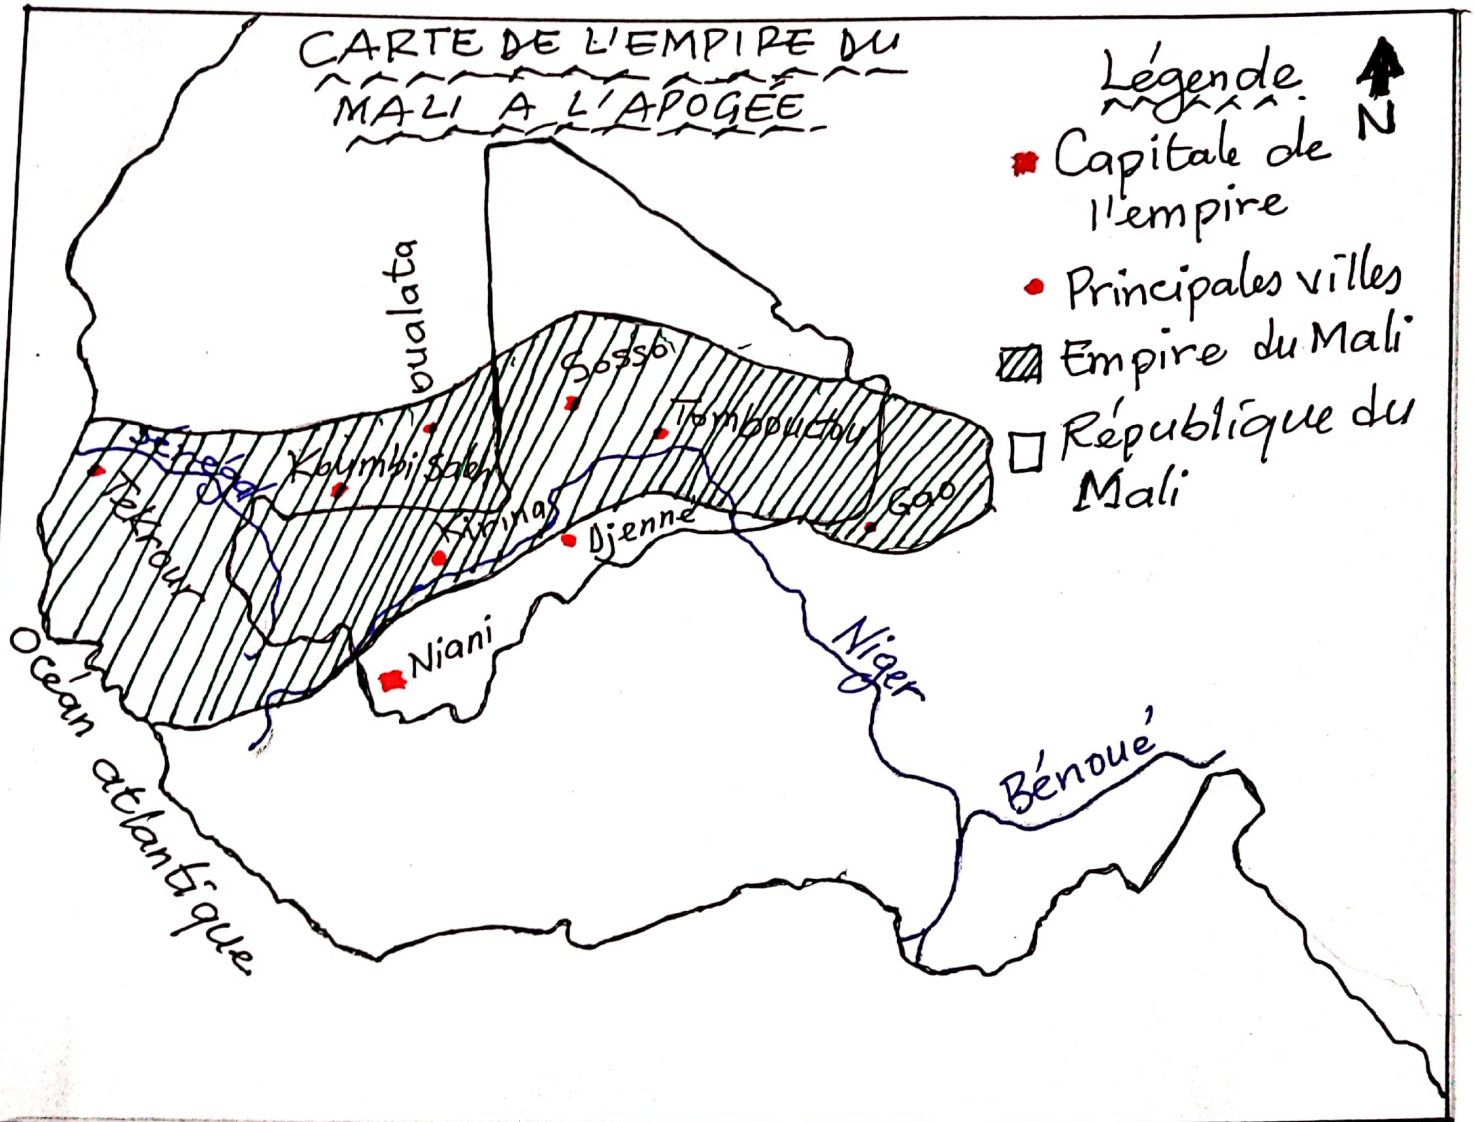 CARTE DE L'EMPIRE DU
MALI A L'APOGÉE
Légende
N
Capitale de
l'empire
Principales villes
Empire du Mali
République du
Mali
oualata
Sosso
Tombouctou
Sénégal
Koumbi Saleh
Tekrour
Kirina
Djenné
Gao
Niani
Niger
Bénoué
Océan atlantique